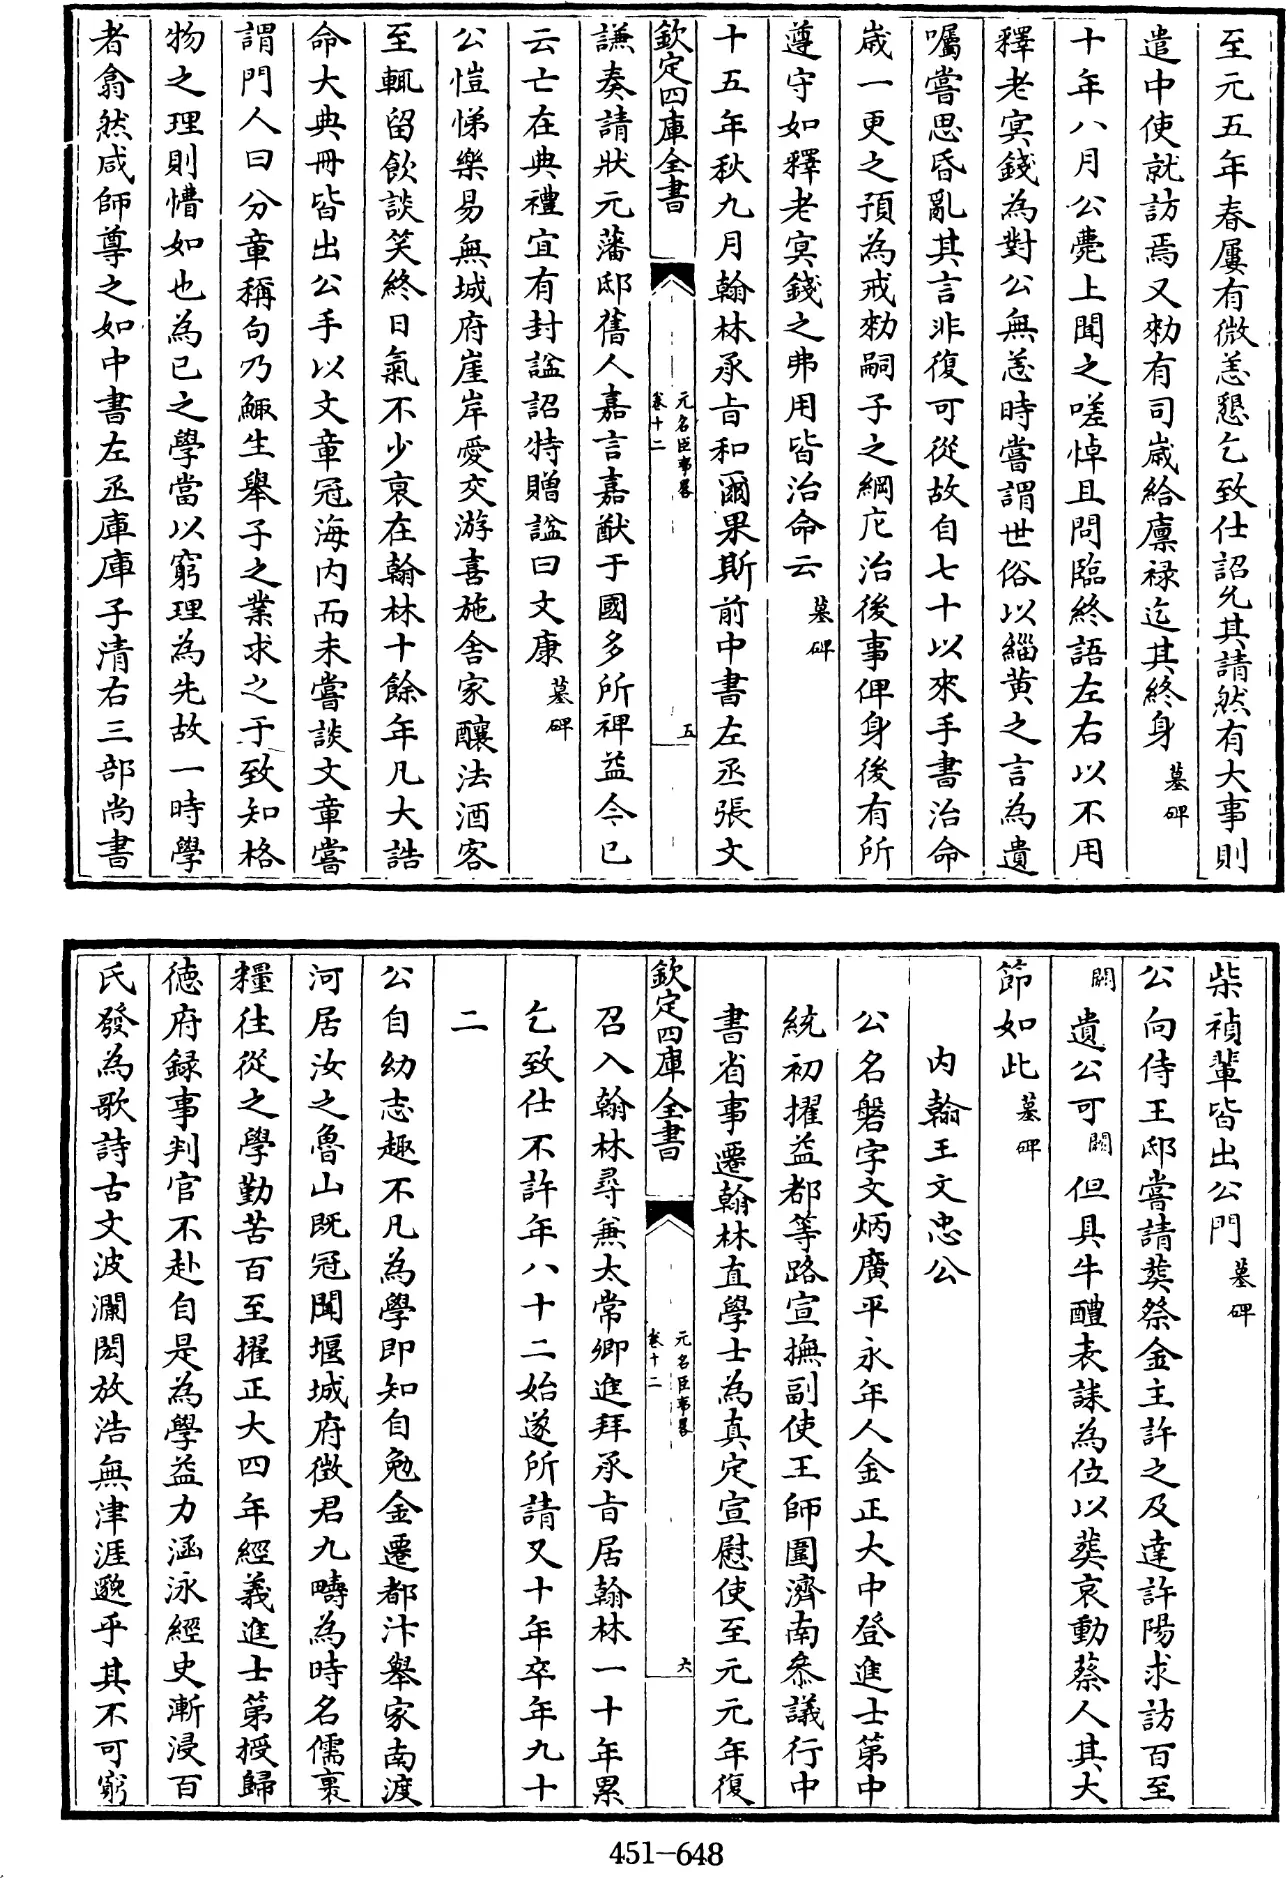 至元五年春屢有微恙懇乞致仕詔允其請然有大事則
遣中使就訪焉又勑有司歳給廪禄迄其終身墓碑
十年八月公薨上聞之嗟悼且問臨終語左右以不用
釋老㝠錢為對公無恙時嘗謂世俗以緇黄之言為遺
囑嘗思昏亂其言非復可從故自七十以來手書治命
歳一更之預為戒勑嗣子之綱庀治後事俾身後有所
遵守如釋老㝠錢之弗用皆治命云墓碑
十五年秋九月翰林承㫖和爾果斯前中書左丞張文
欽定四庫全書
元名臣事畧
卷十二
五
謙奏請狀元藩邸舊人嘉言嘉猷于國多所裨益今已
云亡在典禮宜有封謚詔特贈謚曰文康墓碑
公愷悌樂易無城府崖岸愛交游喜施舍家釀法酒客
至輒留飲談笑終日氣不少衰在翰林十餘年凡大誥
命大典冊皆出公手以文章冠海内而未嘗談文章嘗
謂門人曰分章稱句乃鯫生舉子之業求之于致知格
物之理則懵如也為已之學當以窮理為先故一時學
者翕然咸師尊之如中書左丞庫庫子清右三部尚書
柴禎輩皆出公門墓碑
公向侍王邸嘗請葬祭金主許之及達許陽求訪百至
闕遺公可闕但具牛醴表誄為位以葬哀動蔡人其大
節如此墓碑
内翰王文忠公
公名磐字文炳廣平永年人金正大中登進士第中
統初擢益都等路宣撫副使王師圍濟南叅議行中
書省事遷翰林直學士為真定宣慰使至元元年復
欽定四庫全書
元名臣事畧
卷十二
六
召入翰林尋兼太常卿進拜承㫖居翰林一十年累
乞致仕不許年八十二始遂所請又十年卒年九十
二
公自幼志趣不凡為學即知自勉金遷都汴舉家南渡
河居汝之魯山既冠聞堰城府徴君九疇為時名儒裹
糧往從之學勤苦百至擢正大四年經義進士第授歸
徳府録事判官不赴自是為學益力涵泳經史漸浸百
氏發為歌詩古文波瀾閎放浩無津涯邈乎其不可窮
451-648